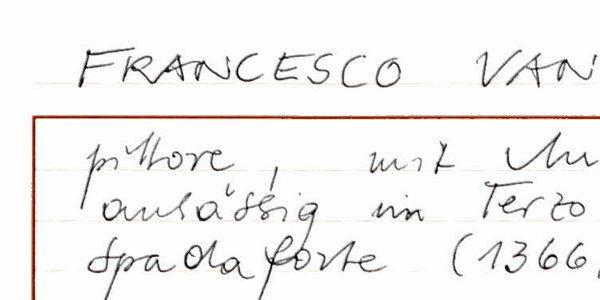 FRANCESCO VAN
pittore, mit
ansässig im Terzo
Spadaforte (1366,